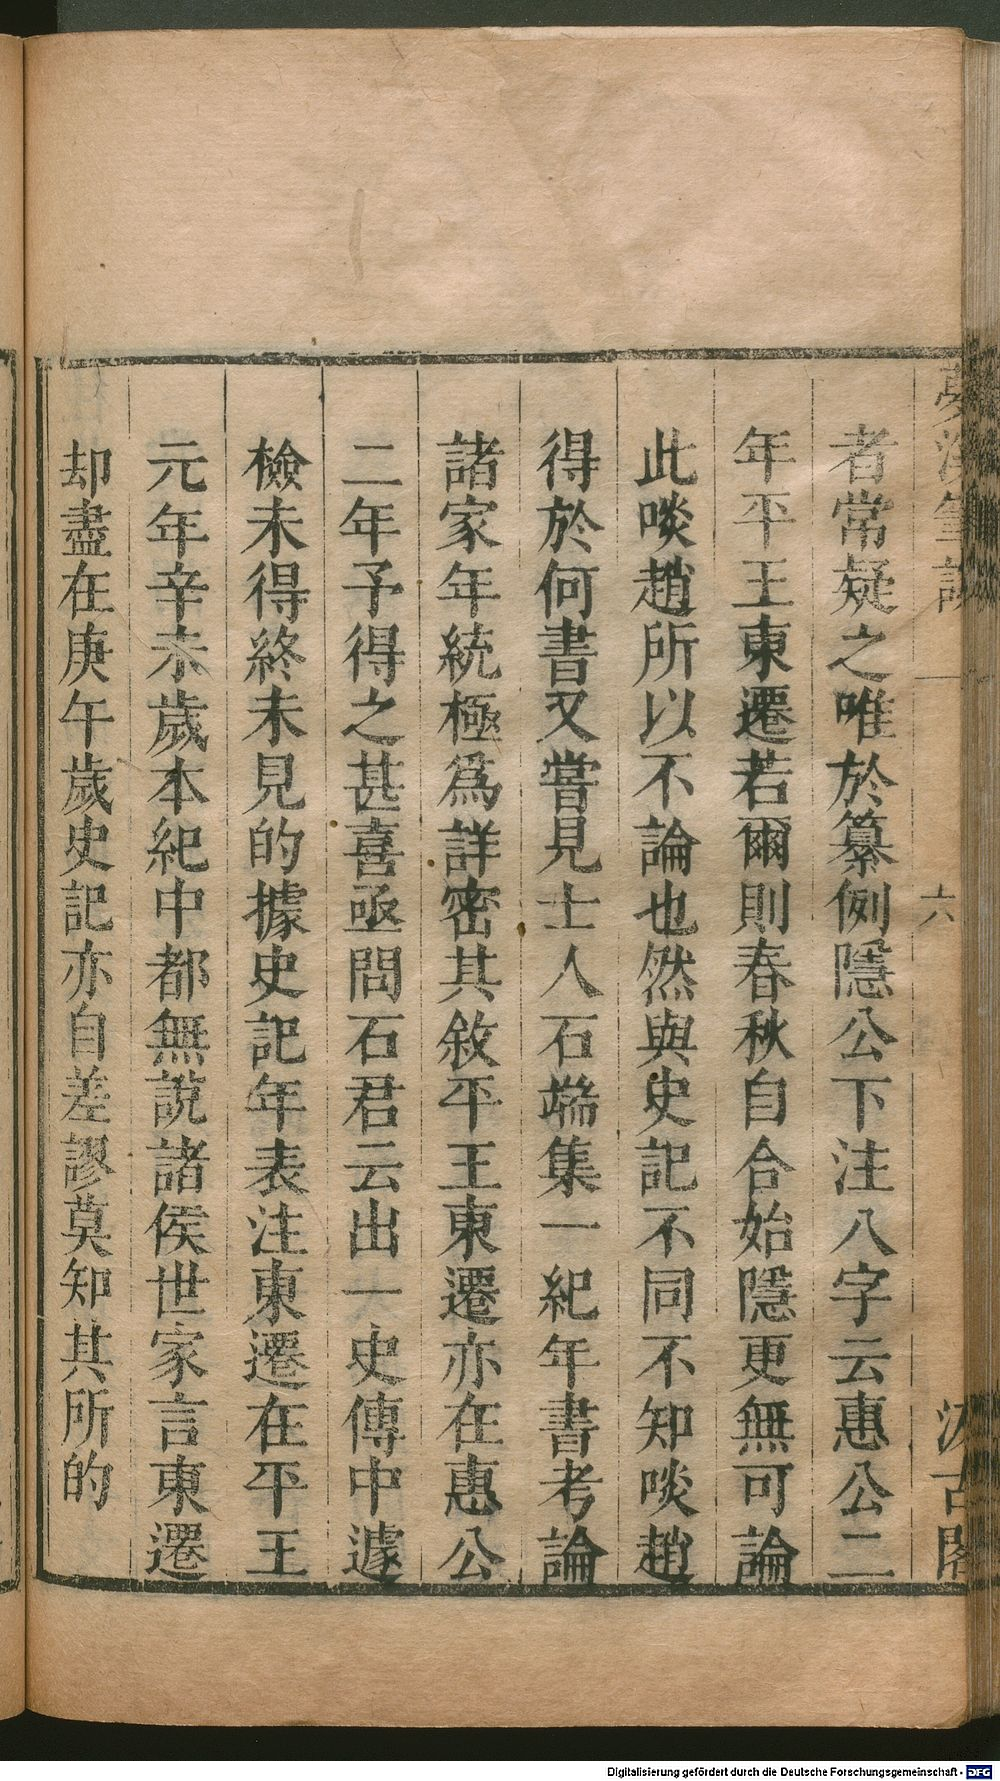 者常疑之唯於纂例隱公下注八字云惠公二
年平王東遷若爾則春秋自合始隱更無可論
此啖趙所以不論也然與史記不同不知啖趙
得於何書又嘗見士人石端集一紀年書考論
諸家年統極爲詳密其敘平王東遷亦在惠公
二年予得之甚喜亟問石君云出一史傳中遽
檢未得終未見的據史記年表注東遷在平王
元年辛未歲本紀中都無說諸侯世家言東遷
却盡在庚午歲史記亦自差謬莫知其所的
六
汲古閣
Digitalisierung gefördert durch die Deutsche Forschungsgemeinschaft - DFG